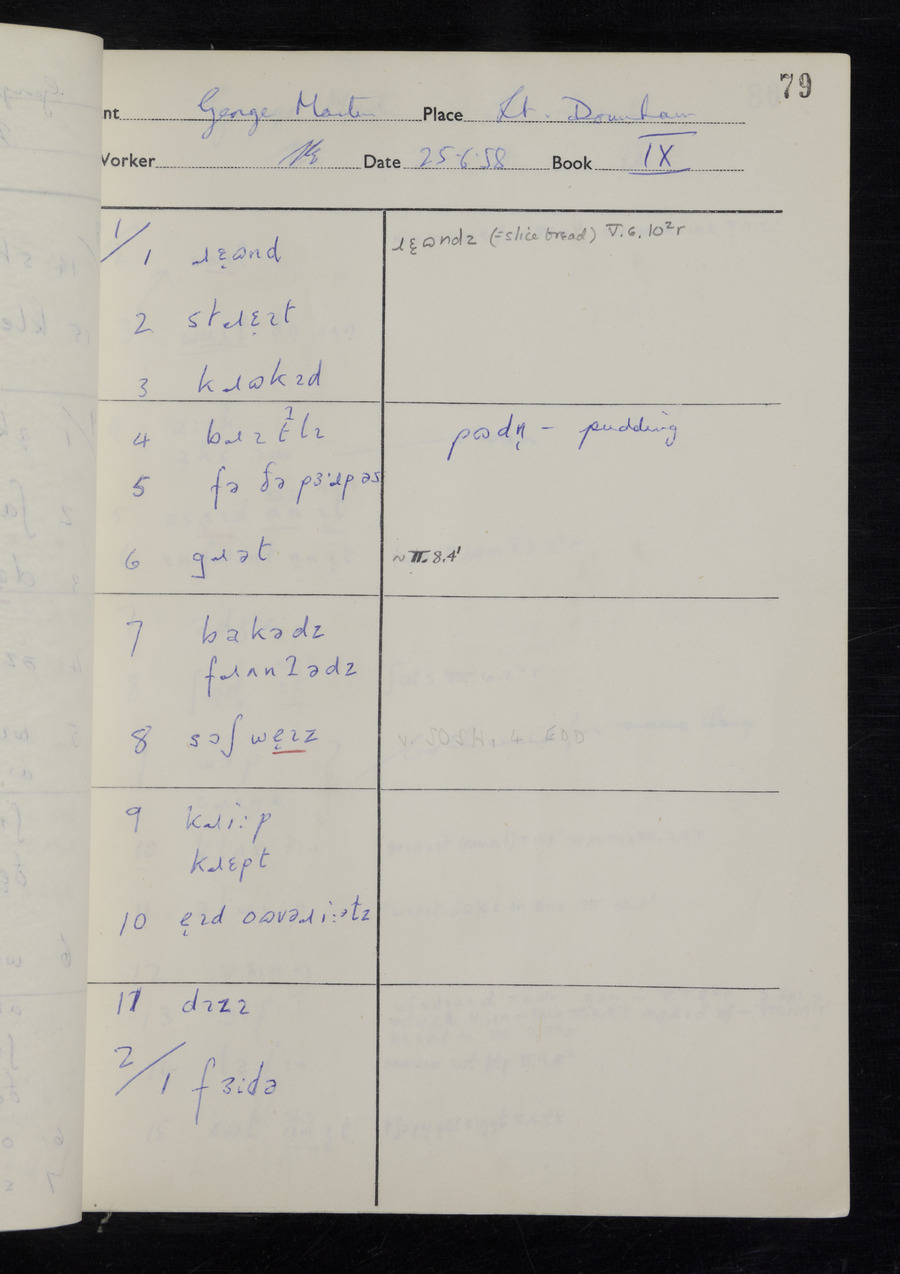 79
nt George Martin Place Lt. Downham
Worker Date 25·6·58 Book IX
1/1 ɹɛ̨ɷnd ɹɛ̨ɷndz (=slice bread) V.6.10²r
2 stɹɛ̨ɪt
3 kɹɷkɪd
4 bɹɪstlz pɷdn̩ - pudding
5 fə ðə pɜ:ɹpəs
6 gɹət ~ II.8.4'
7 bakədz
fɹʌnʔədz
8 səʃwę̈ɪz v. SOSH, 4 EDD
9 kɹi:p
kɹɛpt
10 ę̈ɪd oɷvəɹi:ətz
11 dɪzɪ
2/1 fɜidə